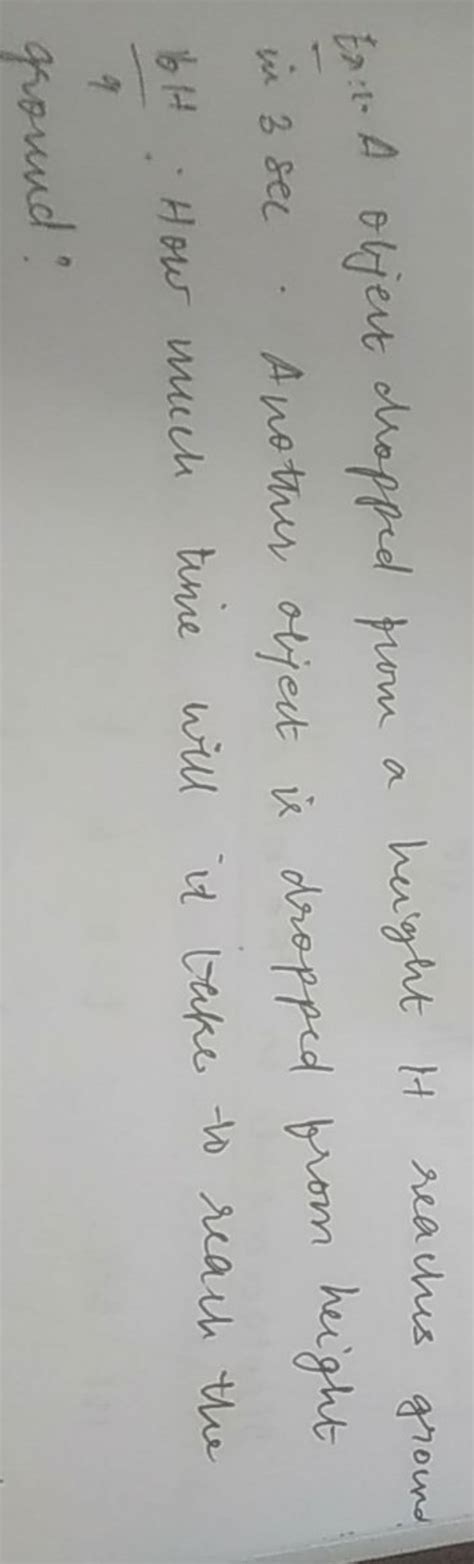 Ex:1. A object dropped from a height H reaches ground
in 3 sec . Another object is dropped from height
6H/9 . How much time will it take to reach the
ground?